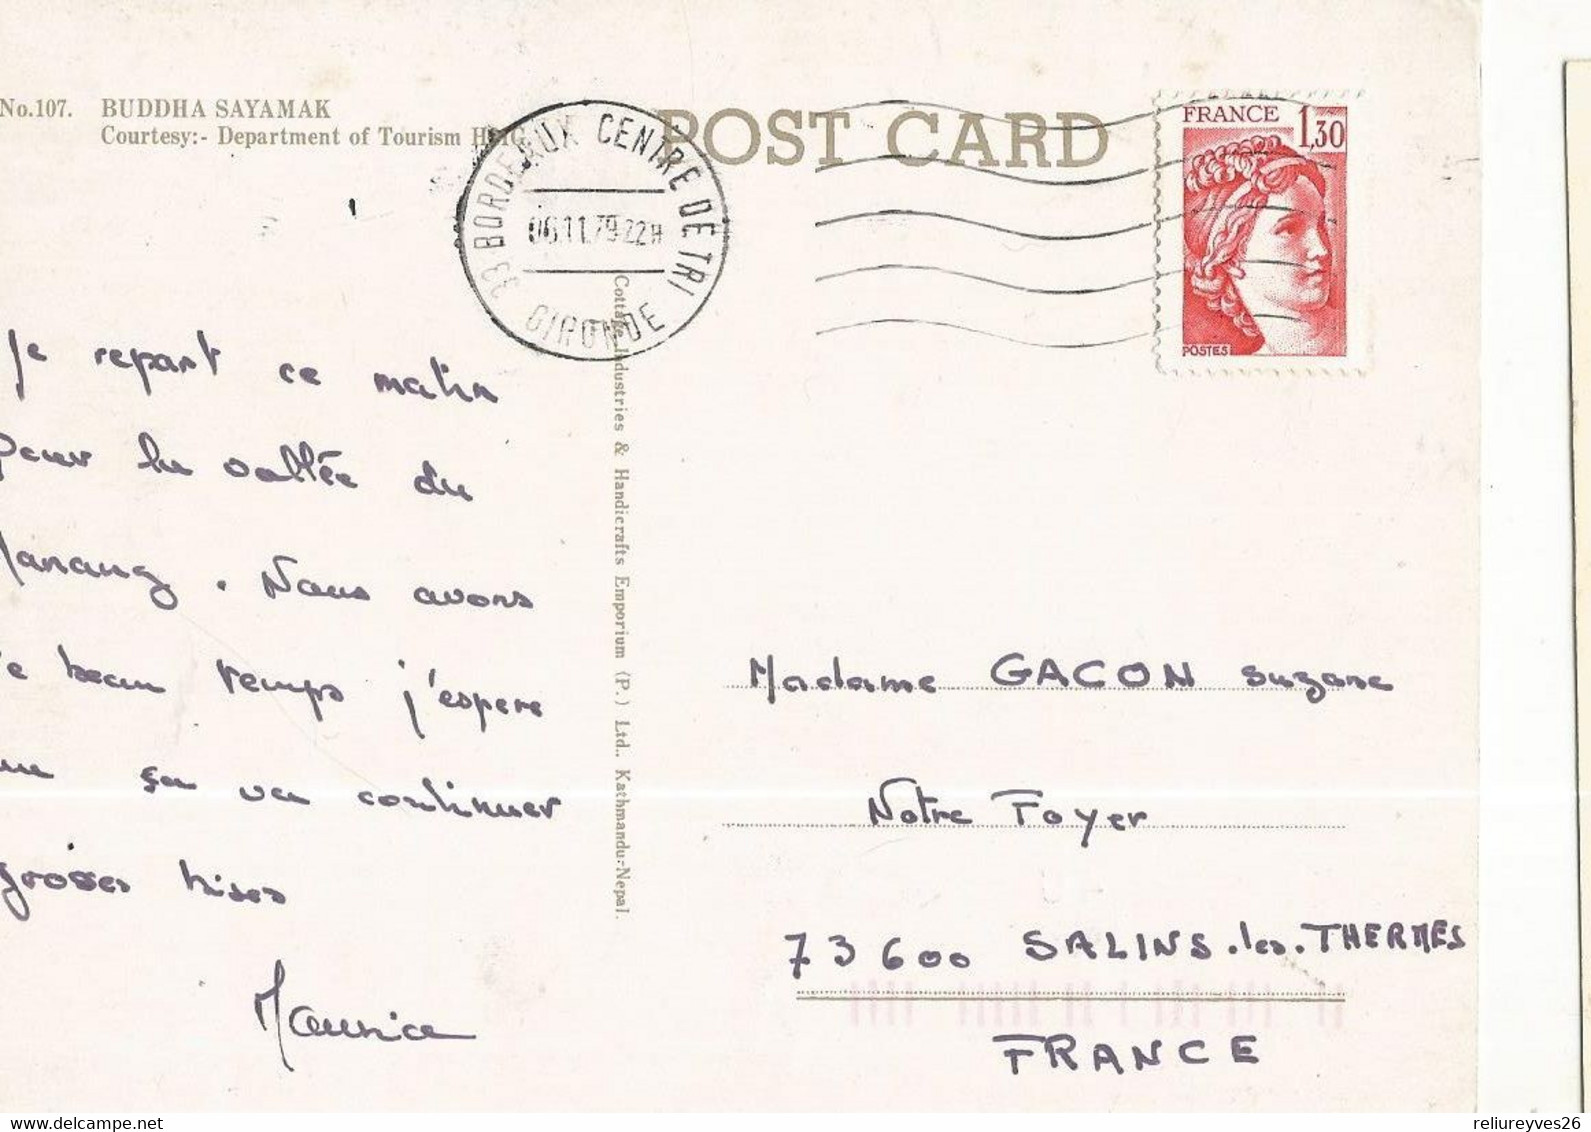 No.107. BUDDHA SAYAMAK
Courtesy:- Department of Tourism HMG
POST CARD
33 BORDEAUX CENTRE DE TRI
06.11.79 22H
GIRONDE
FRANCE
1,30
POSTES
je repart ce matin
pour la vallée du
Manang. Nous avons
beau temps j'espere
ça va continuer
grosses bises
Maurice
Cottage Industries & Handicrafts Emporium (P.) Ltd., Kathmandu-Nepal.
Madame GACON Suzane
Notre Foyer
73600 SALINS.les.THERMES
FRANCE
reliureyves26